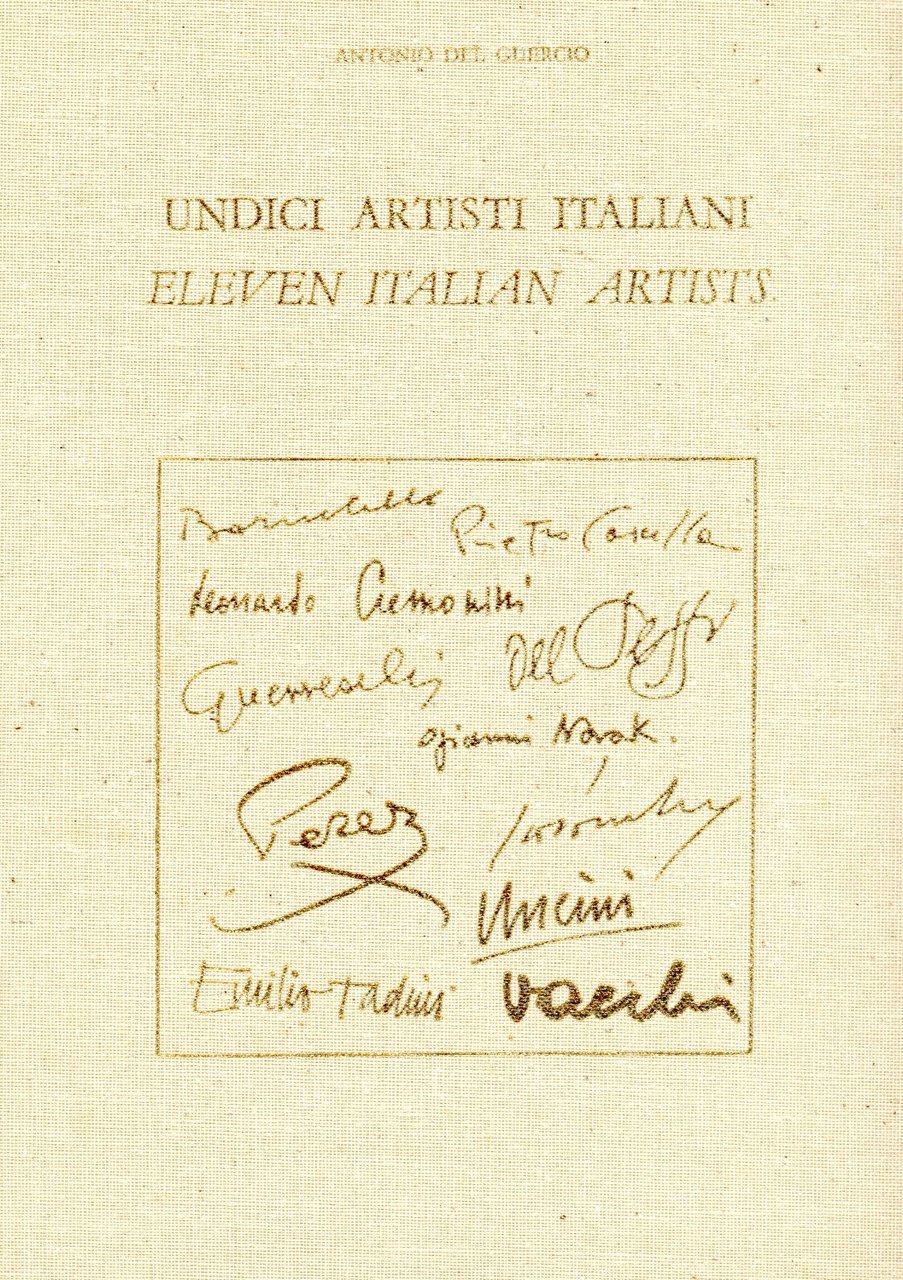 ANTONIO DEL GUERCIO
UNDICI ARTISTI ITALIANI
ELEVEN ITALIAN ARTISTS
Pietro Cascella
Leonardo Cremonini
Guerreschi
Del Pezzo
Giannni Novak.
Perez
Uncini
Emilio Tadini
Vacchi